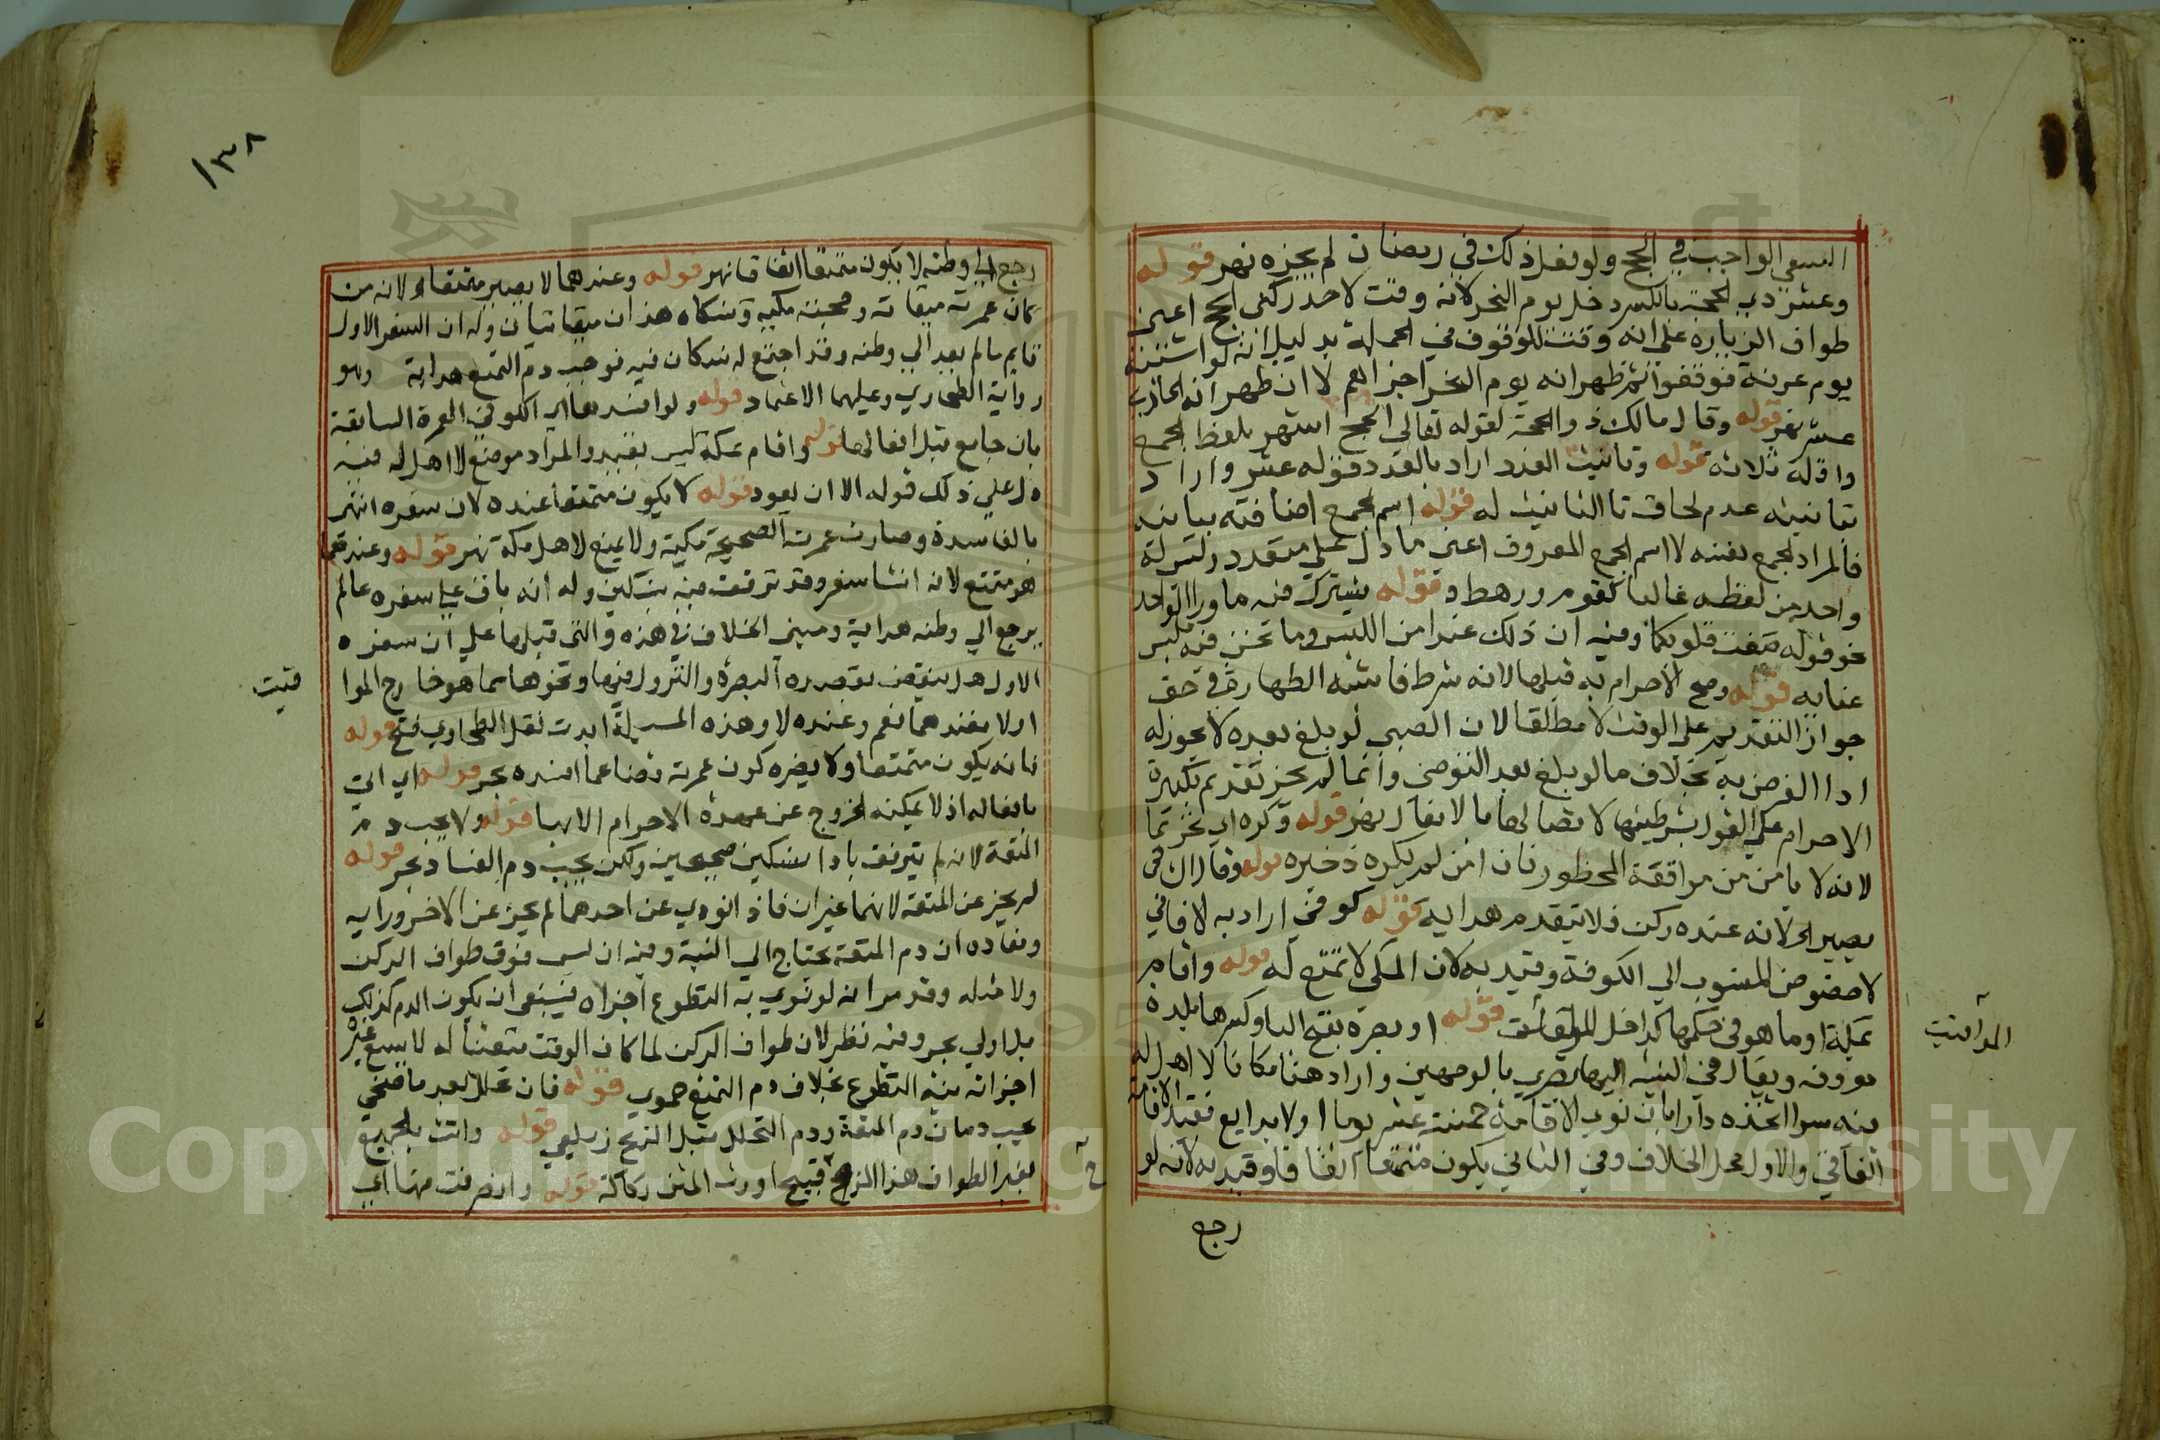 السعي الواجب في الحج ولو فعل ذلك في رمضان لم يجزه نهر قوله
وعشر ذي الحجة بالكسر دخل يوم النحر لانه وقت لاحد ركني الحج اعني
طواف الزيارة على انه وقت للوقوف في الجملة بدليل انه لو اشتبه
يوم عرفة فوقفوا ثم ظهر انه يوم النحر اجزاهم لا ان ظهر انه الحادي
عشر نهر قوله وقال مالك ذو الحجة لقوله تعالى الحج اشهر بلفظ الجمع
واقله ثلاثة قوله وتانيث العدد اراد بالعدد قوله عشر واراد
بتانيثه عدم لحاق تا التانيث له قوله اسم الجمع اضافته بيانية
فالمراد الجمع نفسه لا اسم الجمع المعروف اعني ما دل على متعدد وليس له
واحد من لفظه غالبا كقوم ورهط وقوله يشترك فيه ما ورا الواحد
نحو قوله صغت قلوبكما وفيه ان ذلك عند امن اللبس وما نحن فيه ملبس
عنايه قوله وصح الاحرام به قبلها لانه شرط فاشبه الطهارة في حق
جواز التقديم على الوقت لا مطلقا لان الصبي لو بلغ بعده لا يجوز له
ادا الفرض به بخلاف ما لو بلغ بعد التوضي وانما لم يجز تقديم تكبيرة
الاحرام على القول بشرطيتها لاتصالها بالافعال نهر قوله وكره اي تحريما
لانه لا يامن من مواقعة المحظور فان امن لم يكره ذخيره قوله وقال الشافعي
يصير الخ لانه عنده ركن فلا يتقدم هدايه قوله كوفي اراد به الافاقي
لا خصوص المنسوب الى الكوفة وقيد به لان المكي لا تمتع له قوله واقام
بمكة او ما هو في حكمها كداخل المواقيت قوله او بصرة بفتح البا وكسرها بلدة
معروفه ويقال في النسبة اليها بصري بالوجهين واراد هنا مكانا لا اهل له
فيه سوا اتخذه دارا بان نوى الاقامة خمسة عشر يوما اولا بدايع فقيد الاقامة
اتفاقي والاول محل الخلاف وفي الثاني يكون متمتعا اتفاقا وقيد به لانه لو
رجع
المواقيت
١٣٨
رجع الى وطنه لا يكون متمتعا اتفاقا نهر قوله وعندهما لا يصير متمتعا لانه من
كان عمرته ميقاتية وحجته مكية ونسكاه هذان ميقاتيان وله ان السفر الاول
قايم ما لم يعد الى وطنه وقد اجتمع له نسكان فيه فوجب دم التمتع هداية وهو
رواية الطحاوي وعليهما الاعتماد قوله ولو افسدها اي الكوفي العمرة السابقة
بان جامع قبل افعالها قوله واقام بمكة ليس بقيد والمراد موضع لا اهل له فيه
دل على ذلك قوله الا ان يعود قوله لا يكون متمتعا عنده لان سفره انتهى
بالفاسدة وصارت عمرته الصحيحة مكية ولا تمتع لاهل مكة نهر قوله وعندهما
هو متمتع لانه انشا سفر وقد ترفق فيه بنسكين وله انه باق على سفره ما لم
يرجع الى وطنه هداية ومبنى الخلاف في هذه والتي قبلها على ان سفره
الاول هل ينتقض بقصده البصرة والنزول فيها ونحوها مما هو خارج الموا
قيت
اولا فعندهما نعم وعنده لا وهذه المسيلة ايدت نقل الطحاوي فتح قوله
فانه يكون متمتعا ولا يضره كون عمرته قضا عما افسده بحر قوله اي اتى
بافعاله اذ لا يمكنه الخروج عن عهدة الاحرام الا بها قوله ولا يجب دم
المتعة لانه لم يترفق بادا نسكين صحيحين ولكن يجب دم الفساد بحر قوله
لم يجز عن المتعة لانهما غيران فاذا نوى عن احدهما لم يجز عن الاخر درايه
ومفاده ان دم المتعة يحتاج الى النية وفيه ان ليس فوق طواف الركن
ولا مثله وقد مر انه لو نوى به التطوع اجزاه فينبغي ان يكون الدم كذلك
بل اولى بحر وفيه نظر لان طواف الركن لما كان الوقت متعينا له لا يسع غيره
اجزاته نية التطوع بخلاف دم التمتع حموي قوله فان تحلل بعد ما ضحى
يجب دمان دم المتعة ودم التحلل قبل الذبح زيلعي قوله واتت بالجميع
بغير الطواف هذا المزج قبيح اورث المتن ركاكة قوله وانصرفت منها اي
Copyright © King Saud University
1957